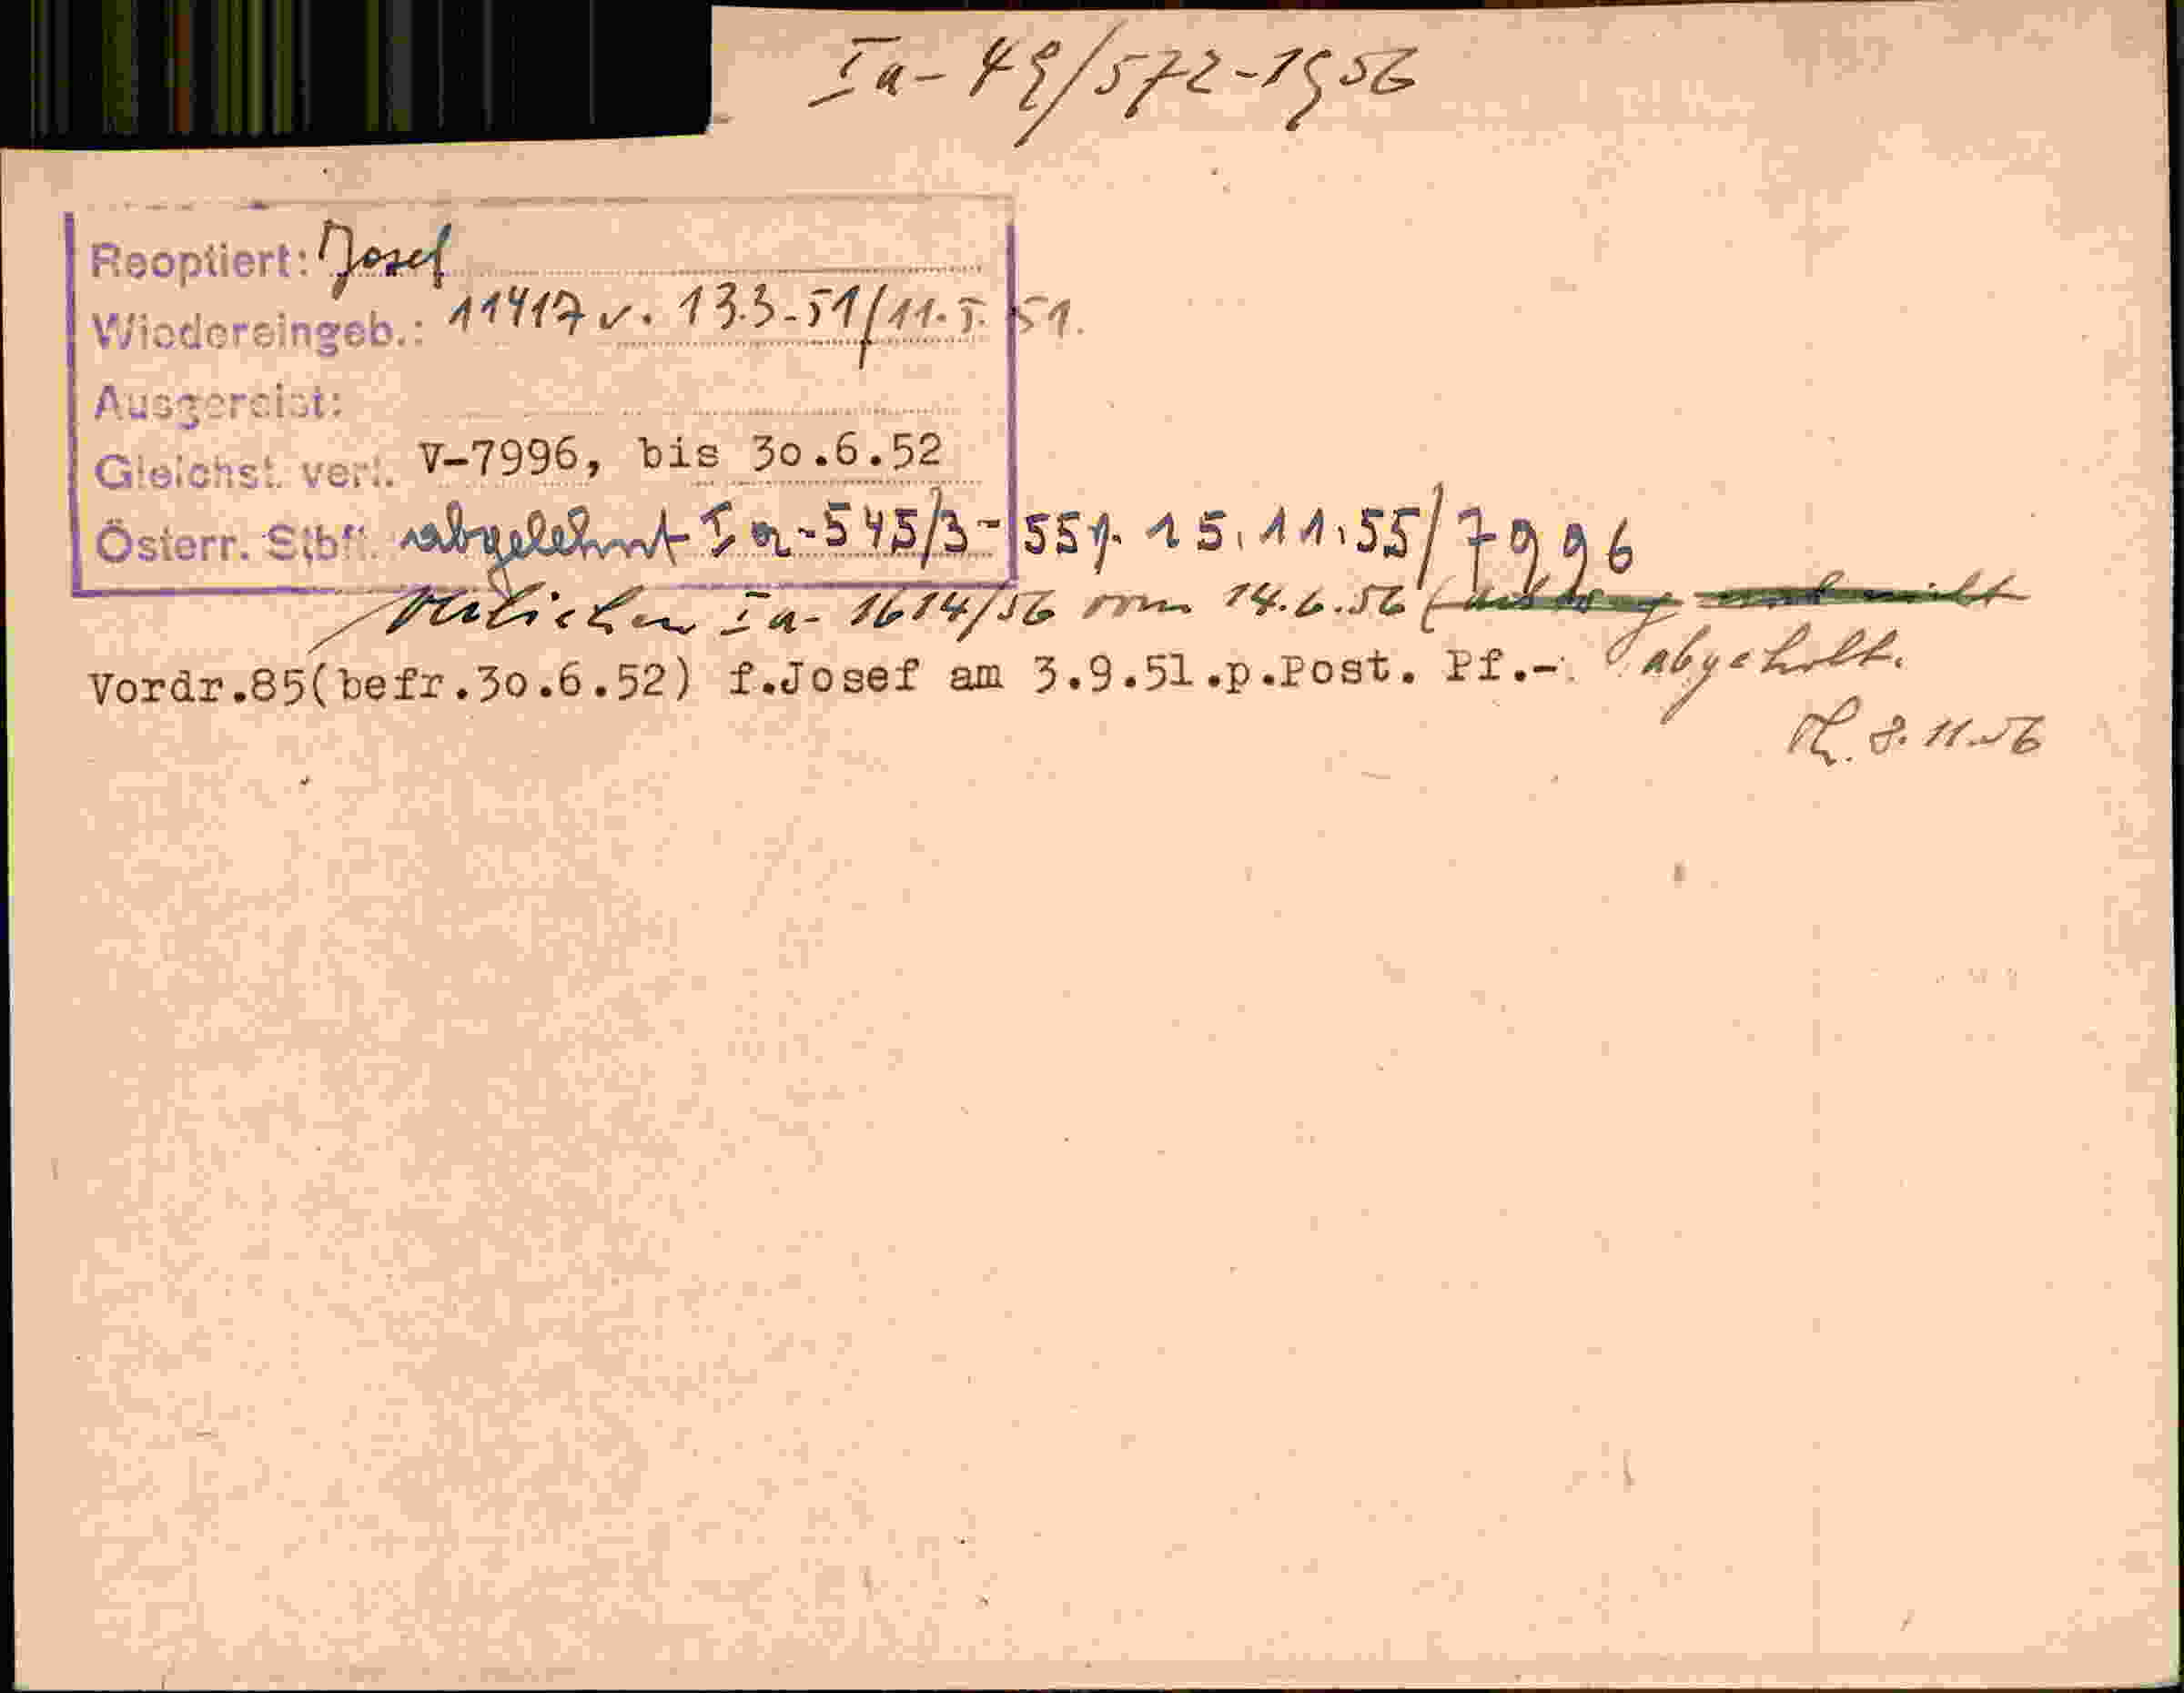 Ia-49/572-1956
Reoptiert: Josef
Wiedereingeb.: 11417 v. 13.3-51/11.5.51.
Ausgereist:
Gleichst. verl. V-7996, bis 30.6.52
Österr. Stbft. abgelehnt Ia-545/3-55 v. 15.11.55/7996
Verliehen Ia-1614/56 vom 14.6.56 (
abgeholt.
Vordr.85(befr.30.6.52) f.Josef am 3.9.51.p.Post. Pf.-.
8.11.56